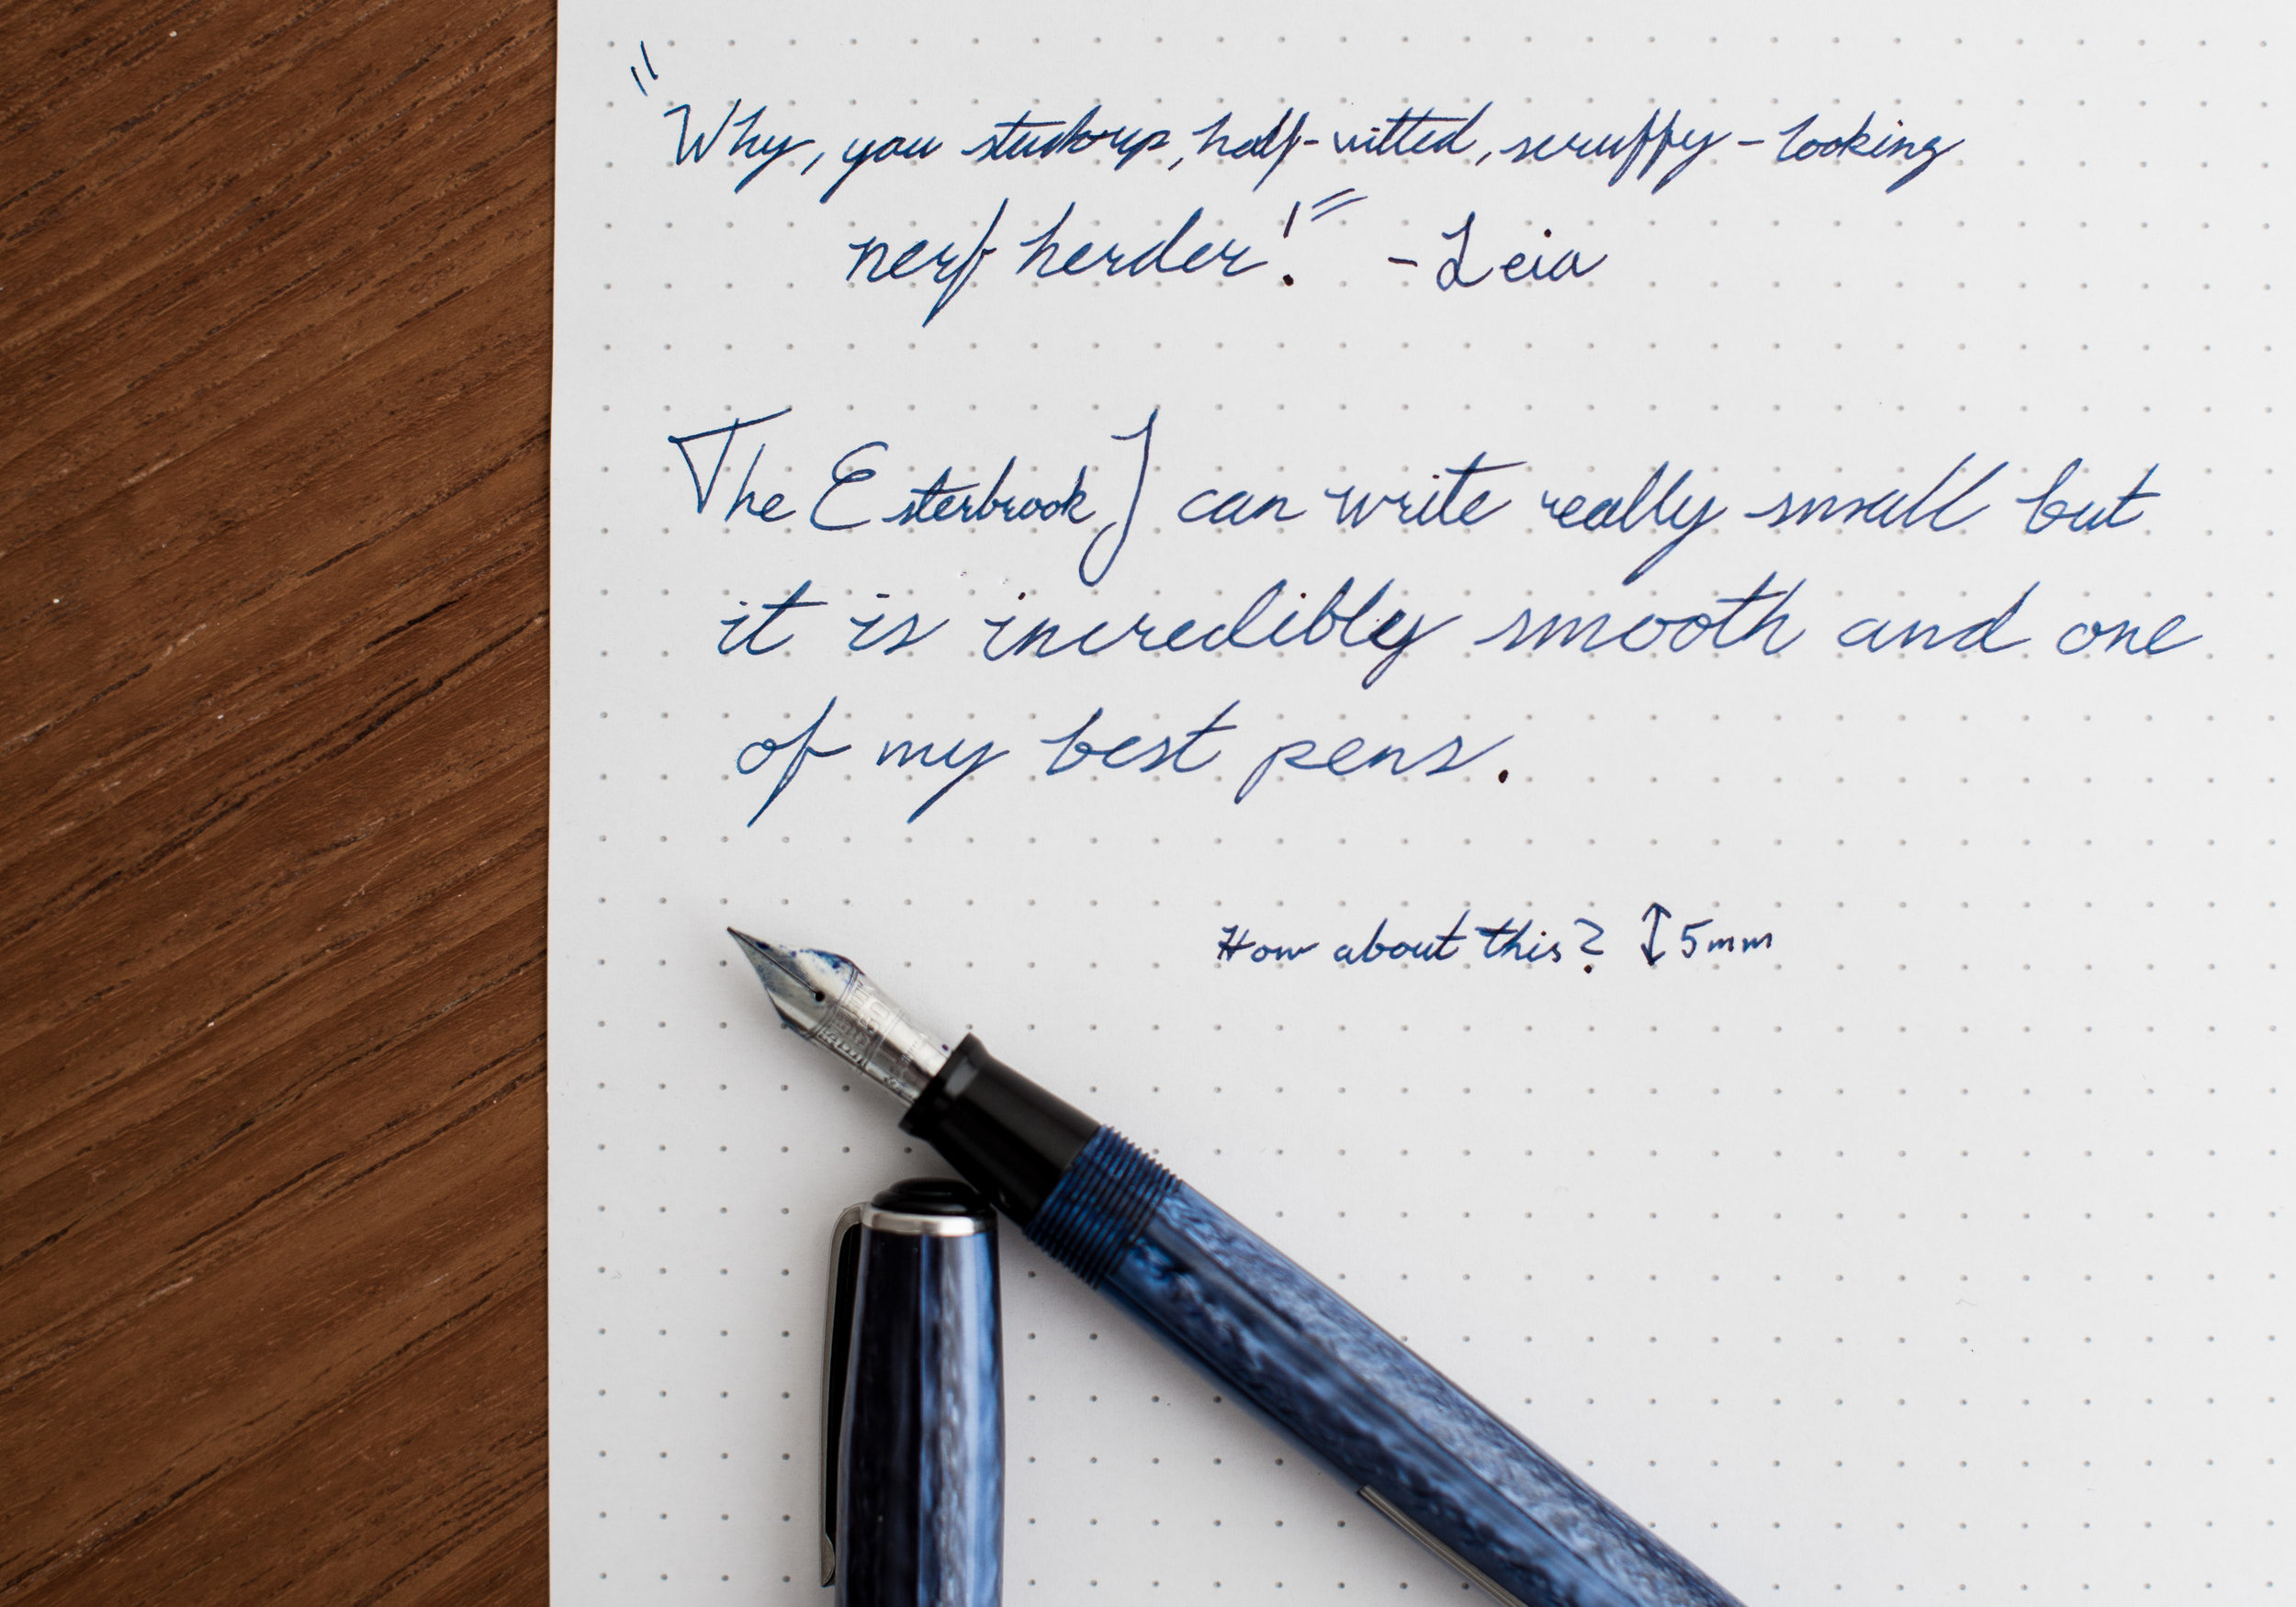 "Why, you stuck-up, half-witted, scruffy-looking
nerf herder!" -Leia
The Esterbrook J can write really small but
it is incredibly smooth and one
of my best pens.
How about this? ↕5mm